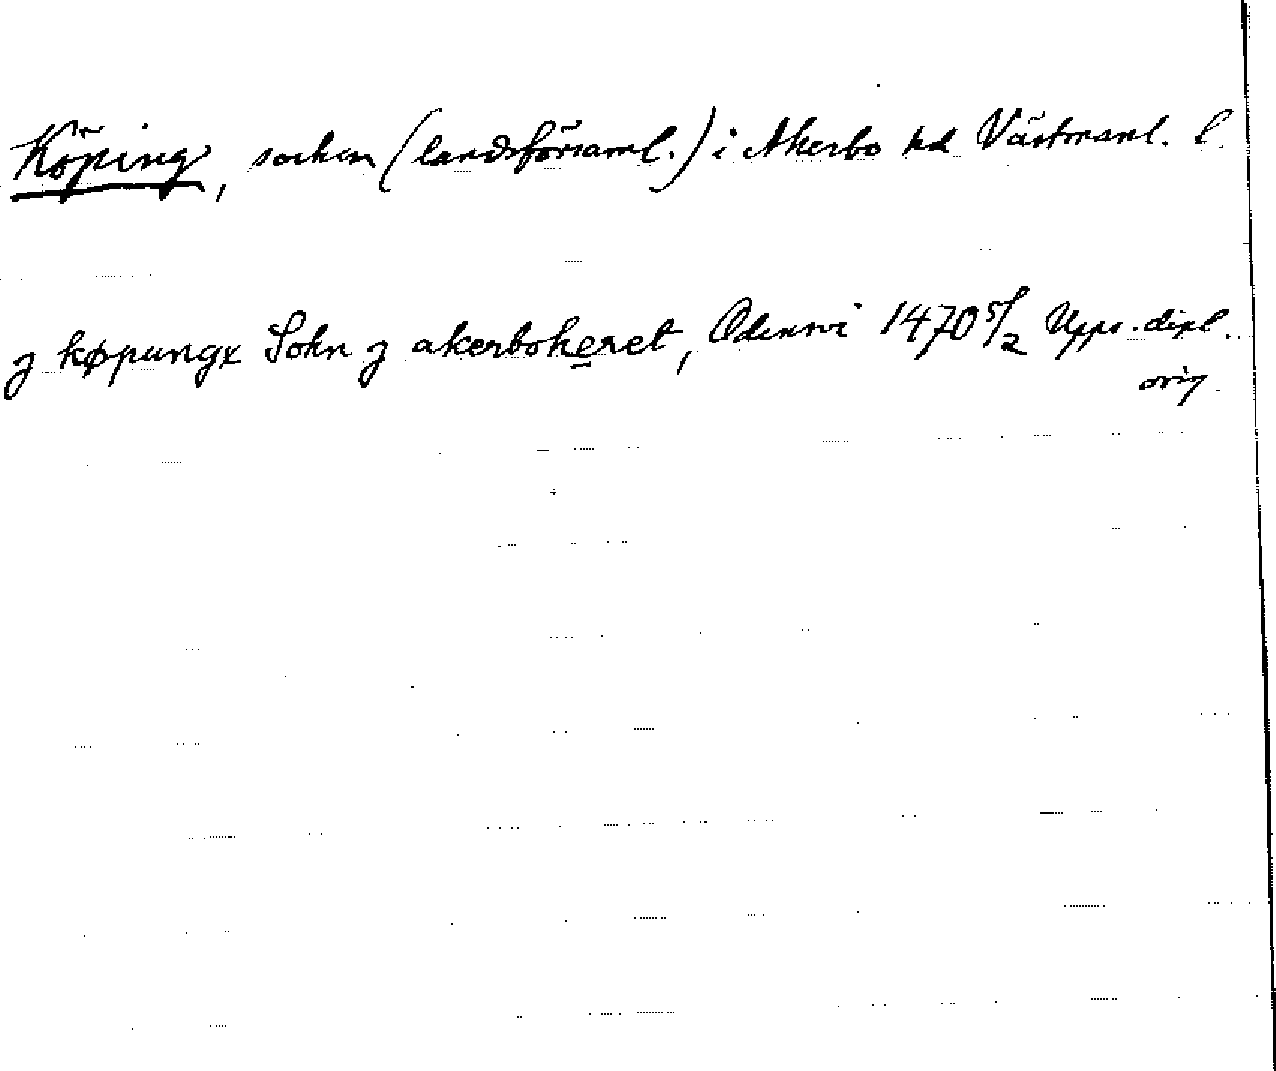 Köping, socken (landsförsaml.) i Åkerbo hd Västmanl. l.
j køpungx Sokn j akerboheret, Odensvi 1470 5/2 Upps. dipl.
orig.